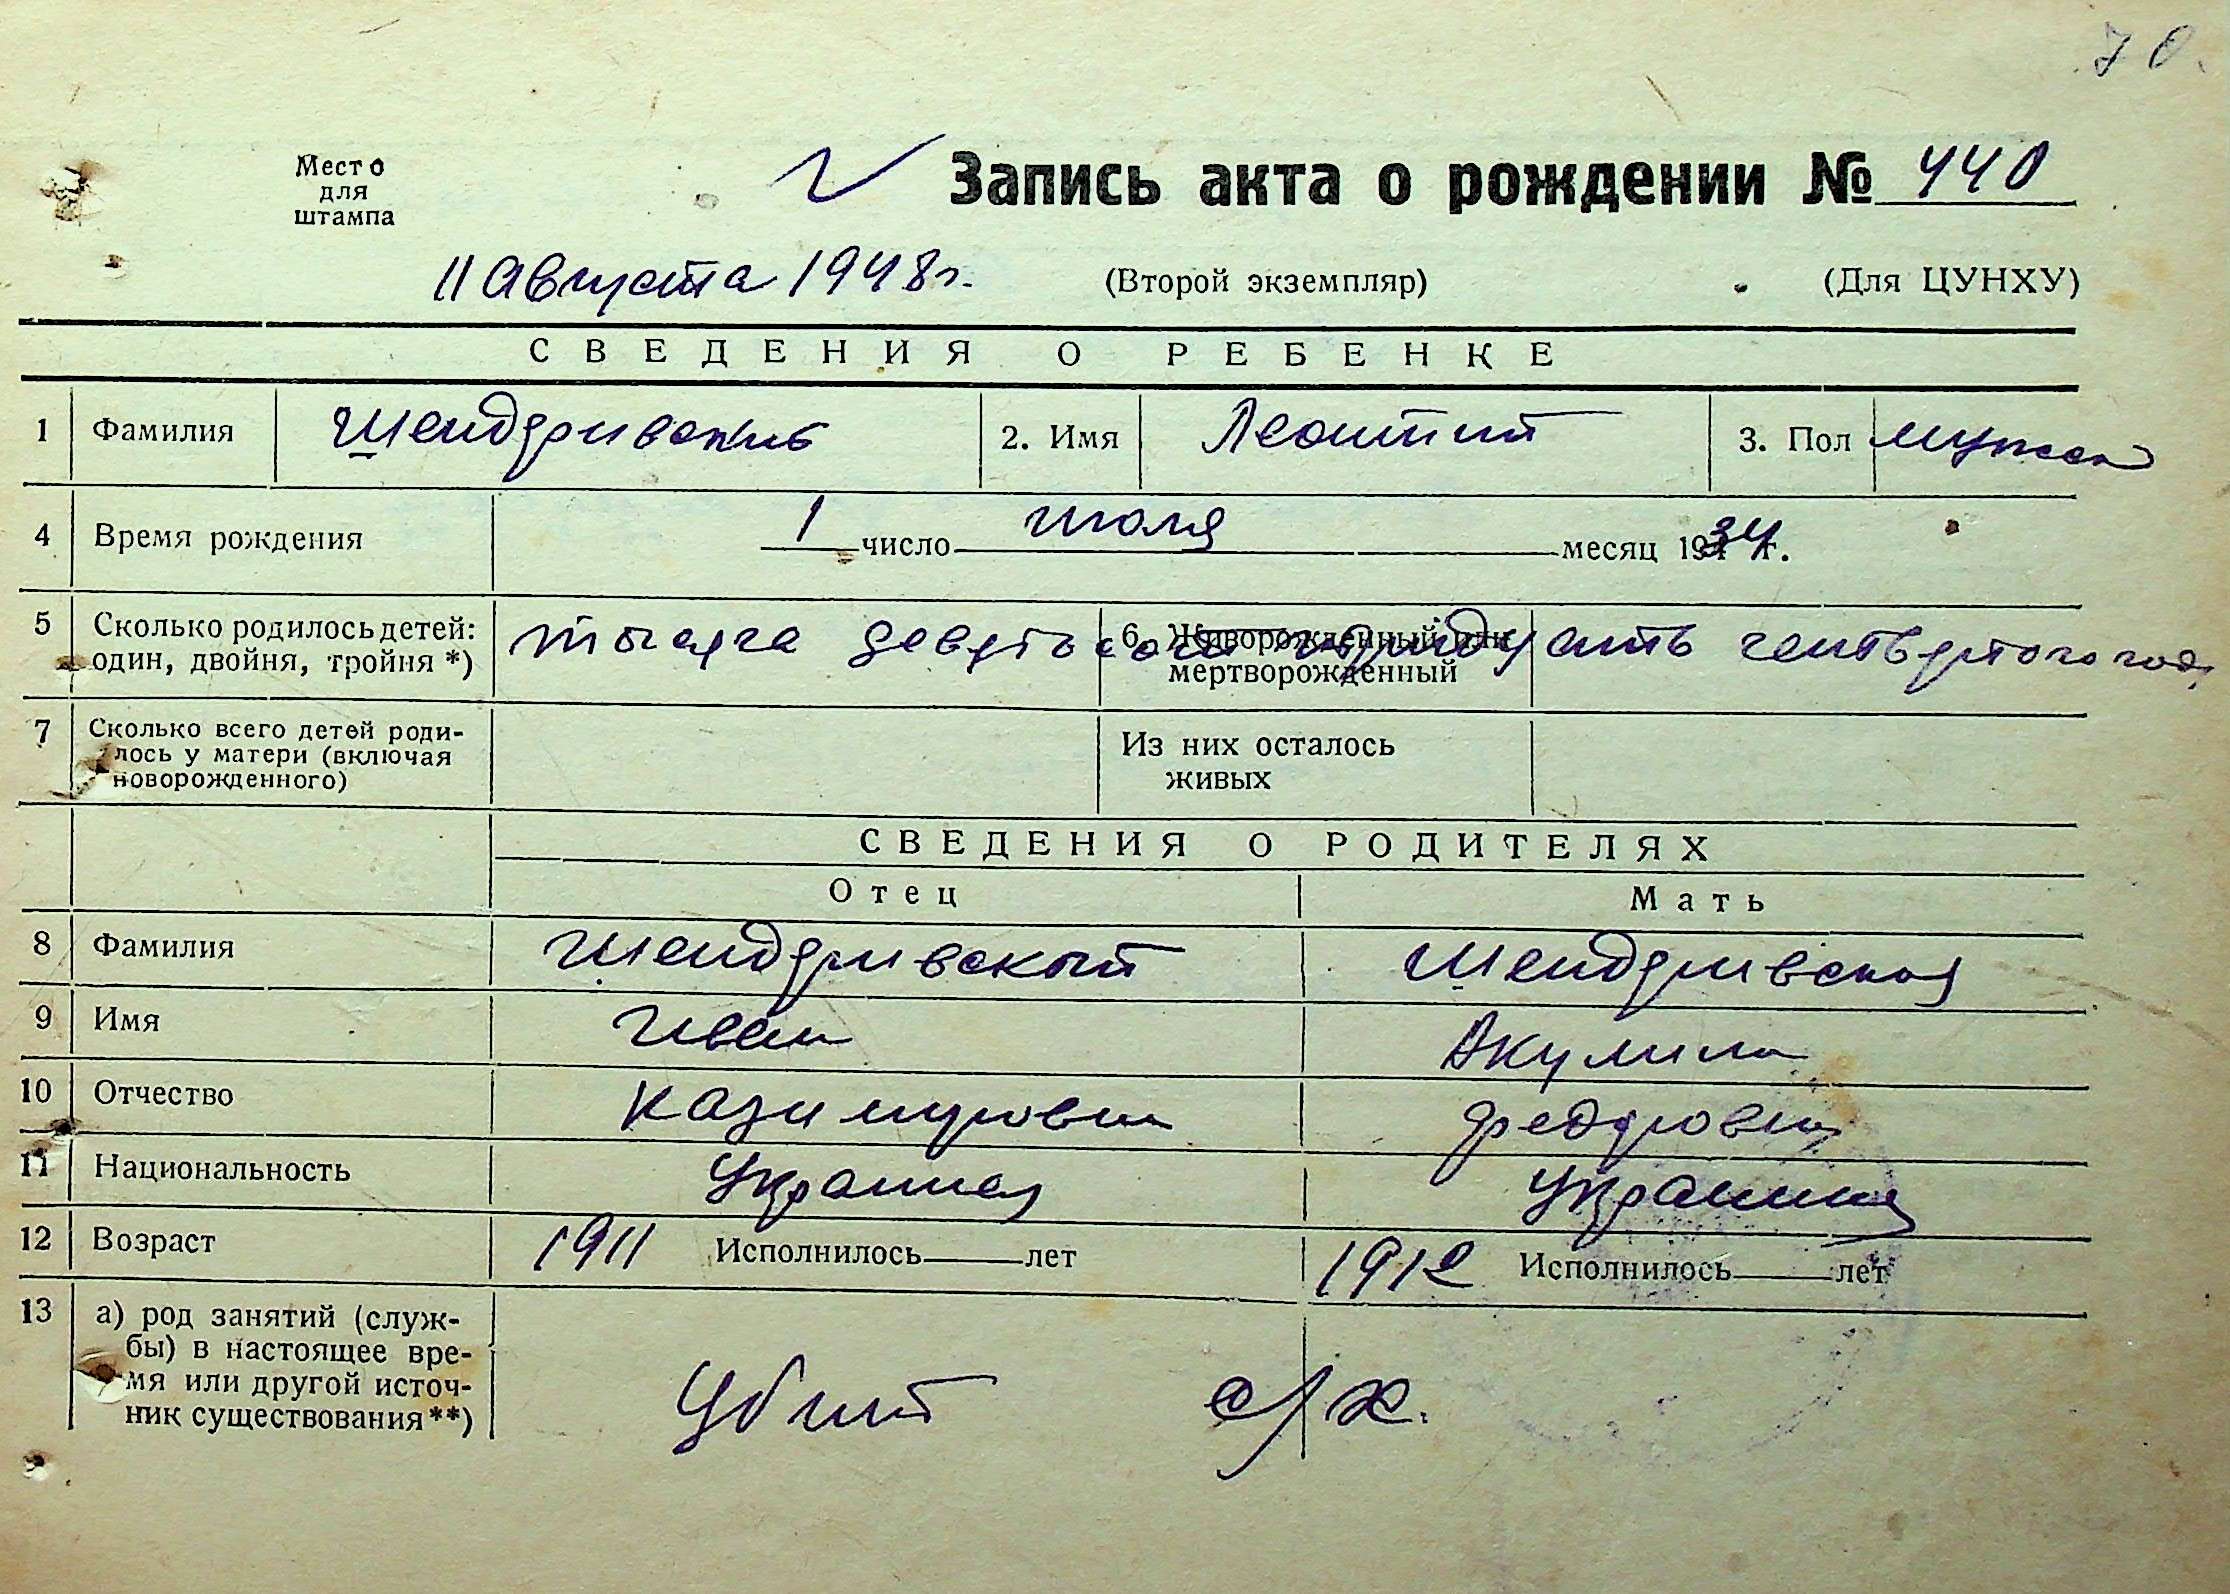 70.
Место
для
штампа
Запись акта о рождении № 440
11 августа 1948 г. (Второй экземпляр) (Для ЦУНХУ)
СВЕДЕНИЯ О РЕБЕНКЕ
1 Фамилия Шендривский 2. Имя Леонтий 3. Пол мужск
4 Время рождения 1 число июля месяц 1934 г.
5 Сколько родилось детей: один, двойня, тройня *) 6. Живорожденный или мертворожденный
тысяча девятьсот тридцать четвертого года
7 Сколько всего детей родилось у матери (включая новорожденного) Из них осталось живых
СВЕДЕНИЯ О РОДИТЕЛЯХ
Отец Мать
8 Фамилия Шендривский Шендривская
9 Имя Иван Акулина
10 Отчество Казимирович Федоровна
11 Национальность Украинец Украинка
12 Возраст 1911 Исполнилось лет 1912 Исполнилось лет
13 а) род занятий (служ-
бы) в настоящее вре-
мя или другой источ-
ник существования**) Убит с/х.